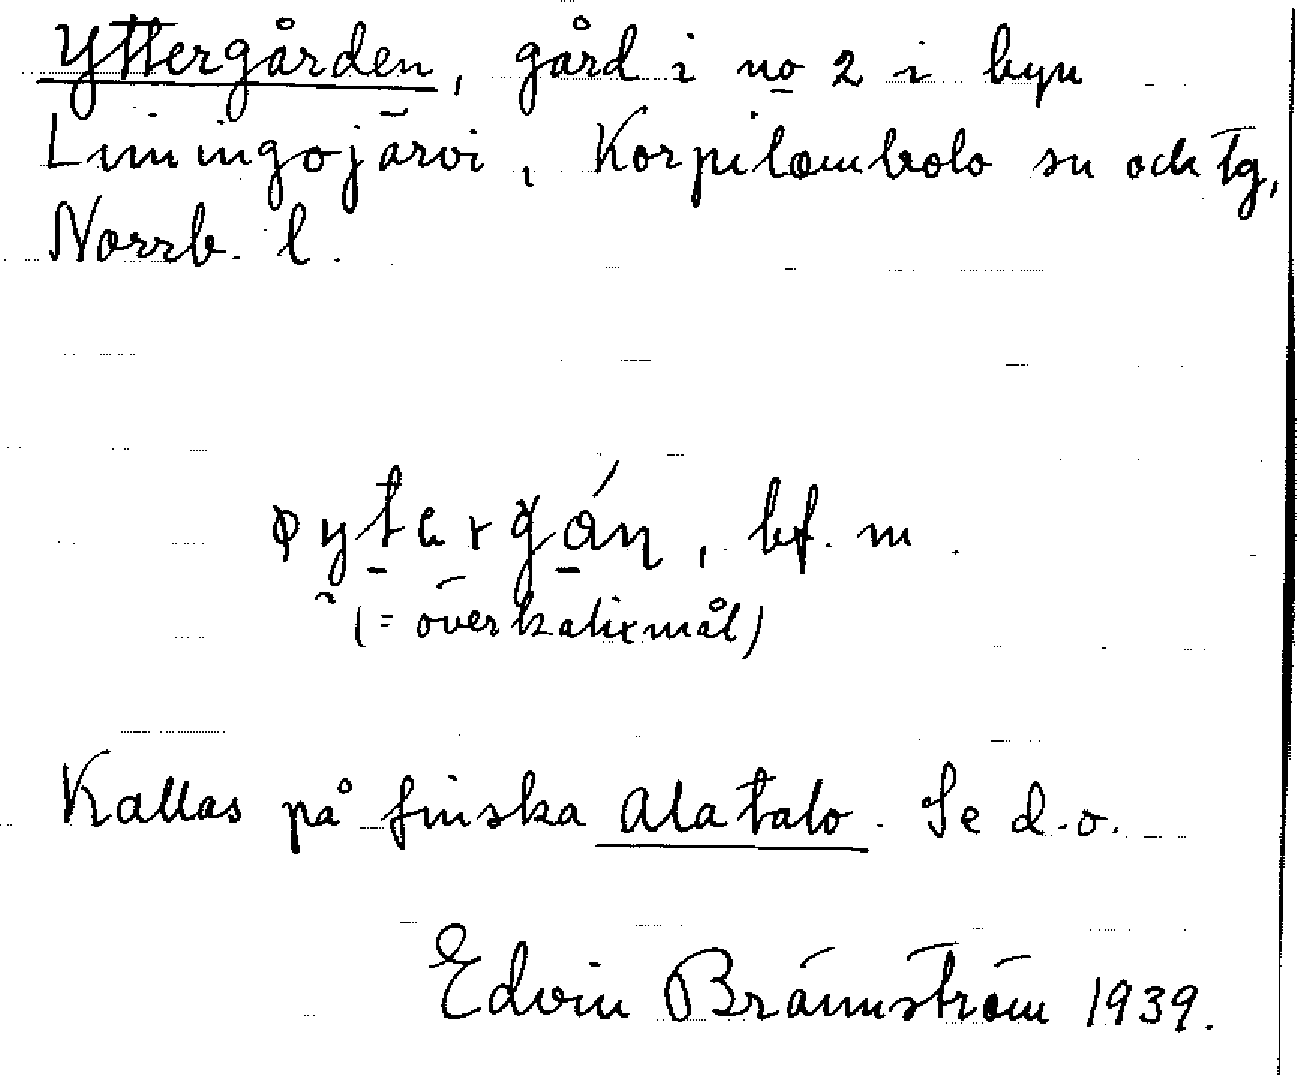 Yttergården, gård i no 2 i byn
Liviningojärvi, Korpilombolo sn och tg,
Norrb. l.
bf. m.
(= överkalixmål)
Kallas på finska Alatalo. Se d.o.
Edvin Brännström 1939.